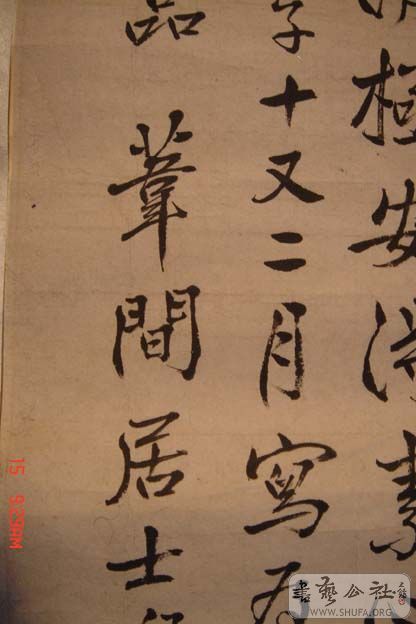 極安
子十又二月寫
品 葦間居士
15 9:29AM
書藝公社
WWW.SHUFA.ORG